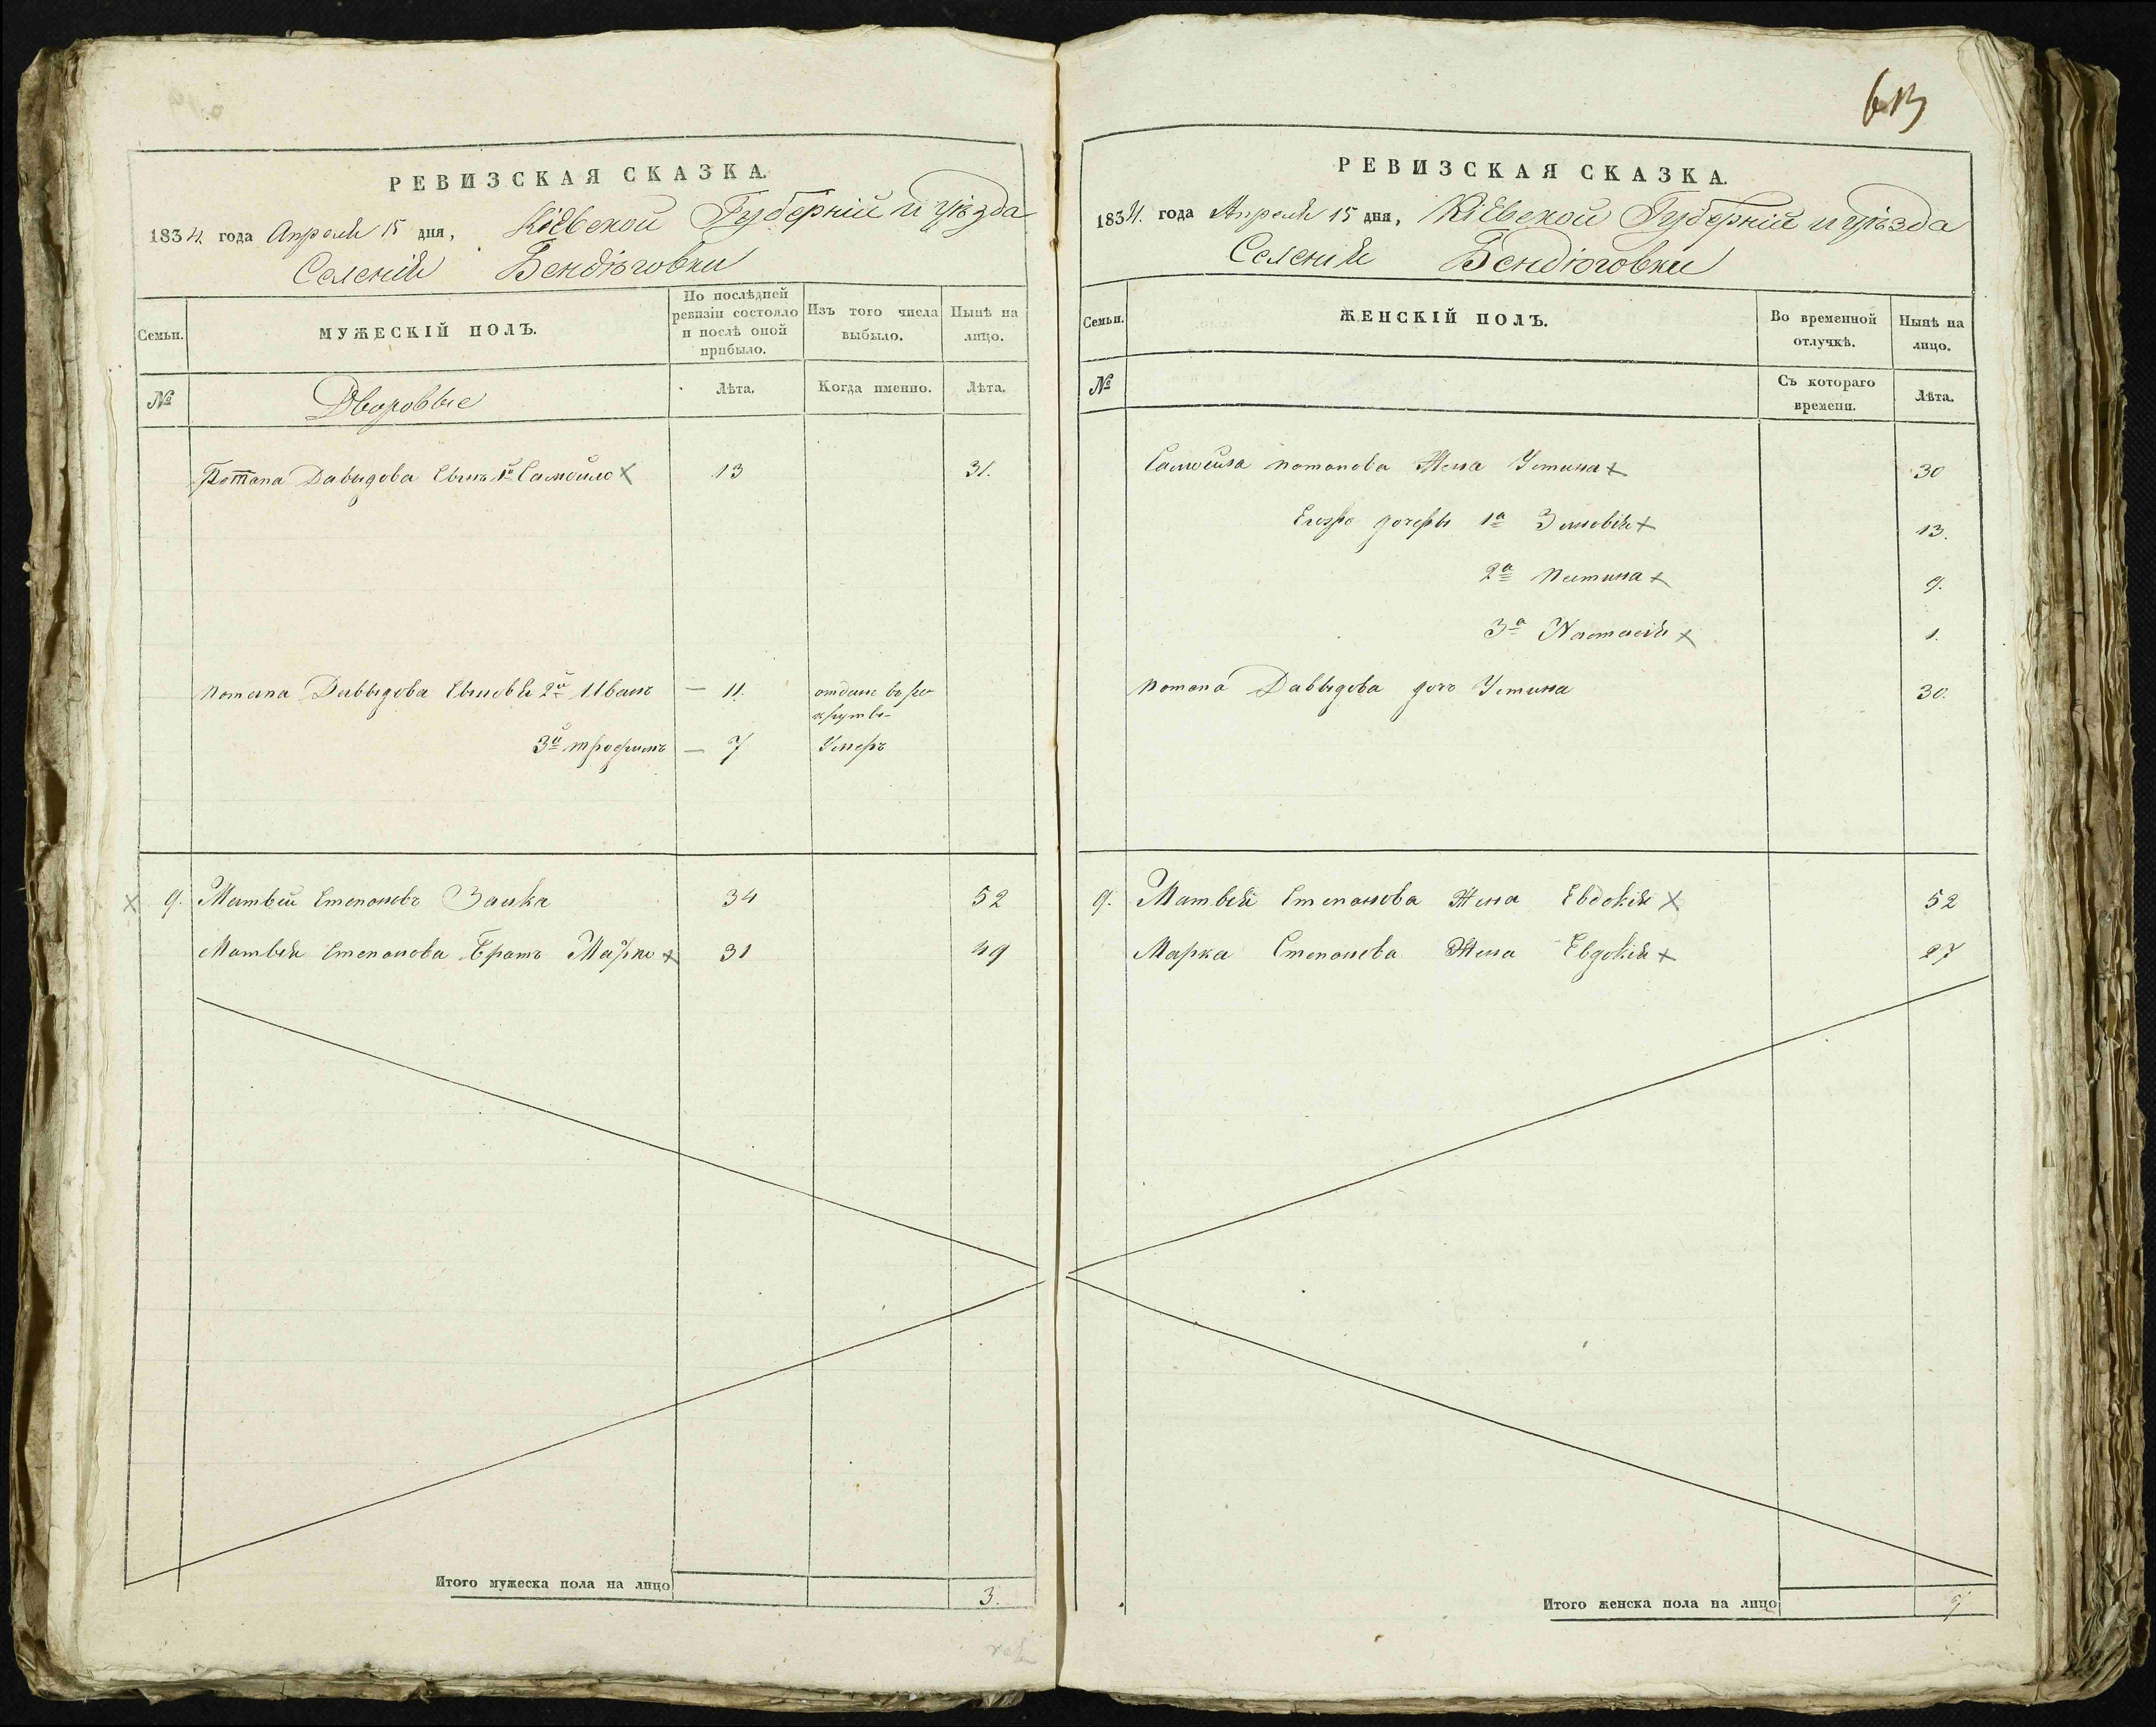 РЕВИЗСКАЯ СКАЗКА.
1834. года Апреля 15 дня, Кіевской Губерніи и уѣзда
Селенія Бендюговки
Семьи.
МУЖЕСКІЙ ПОЛЪ.
По послѣдней ревизіи состояло и послѣ оной прибыло.
Изъ того числа выбыло.
Нынѣ на лицо.
№
Дворовые
Лѣта.
Когда именно.
Лѣта.
Потапа Давыдова Сынъ 1й Самойло х 13 31.
Потапа Давыдова Сыновья 2й Иванъ — 11. отданъ въ ре-
крутъ-
3й трофимъ — 7 Умеръ
х 9. Матвѣй Степановъ Заика 34 52
Матвѣя Степанова Братъ Марко х 31 49
Итого мужеска пола на лицо 3.
613
РЕВИЗСКАЯ СКАЗКА.
1834. года Апреля 15 дня, Кіевской Губерніи и уѣзда
Селенія Бендюговки
Семьи.
ЖЕНСКІЙ ПОЛЪ.
Во временной отлучкѣ.
Нынѣ на лицо.
№
Съ котораго времени.
Лѣта.
Самойла потапова Жена Устина х 30
дочеры 1а Зиновія х 13.
2а х 9.
3а Настасія х 1.
Потапа Давыдова дочь Устина 30.
9. Матвѣя Степанова Жена Евдокія х 52
Марка Степанова Жена Евдокія х 27
Итого женска пола на лицо 7